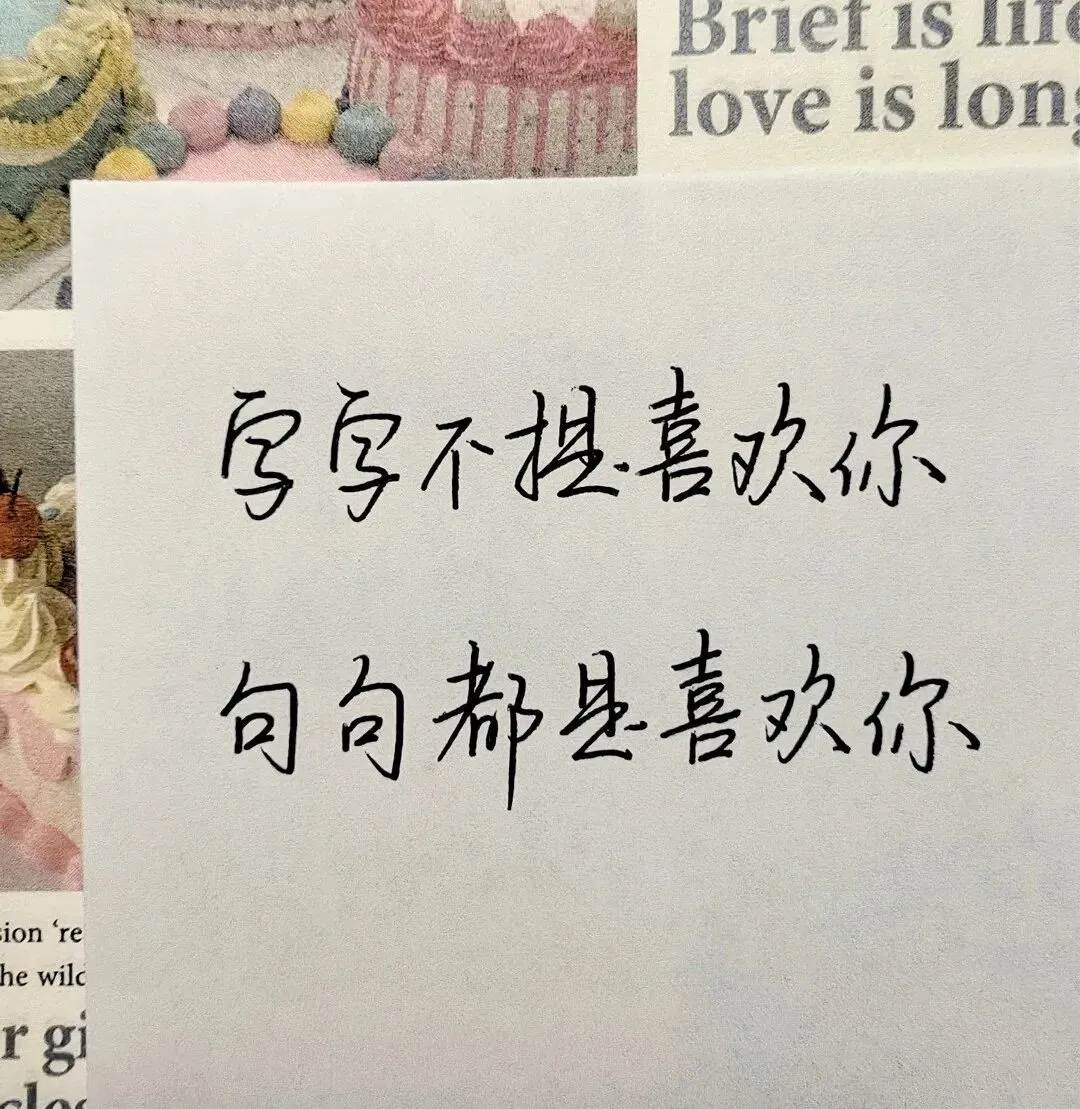 Brief is life
love is long
字字不提喜欢你
句句都是喜欢你
sion ‘re
he wild
r gi
clos